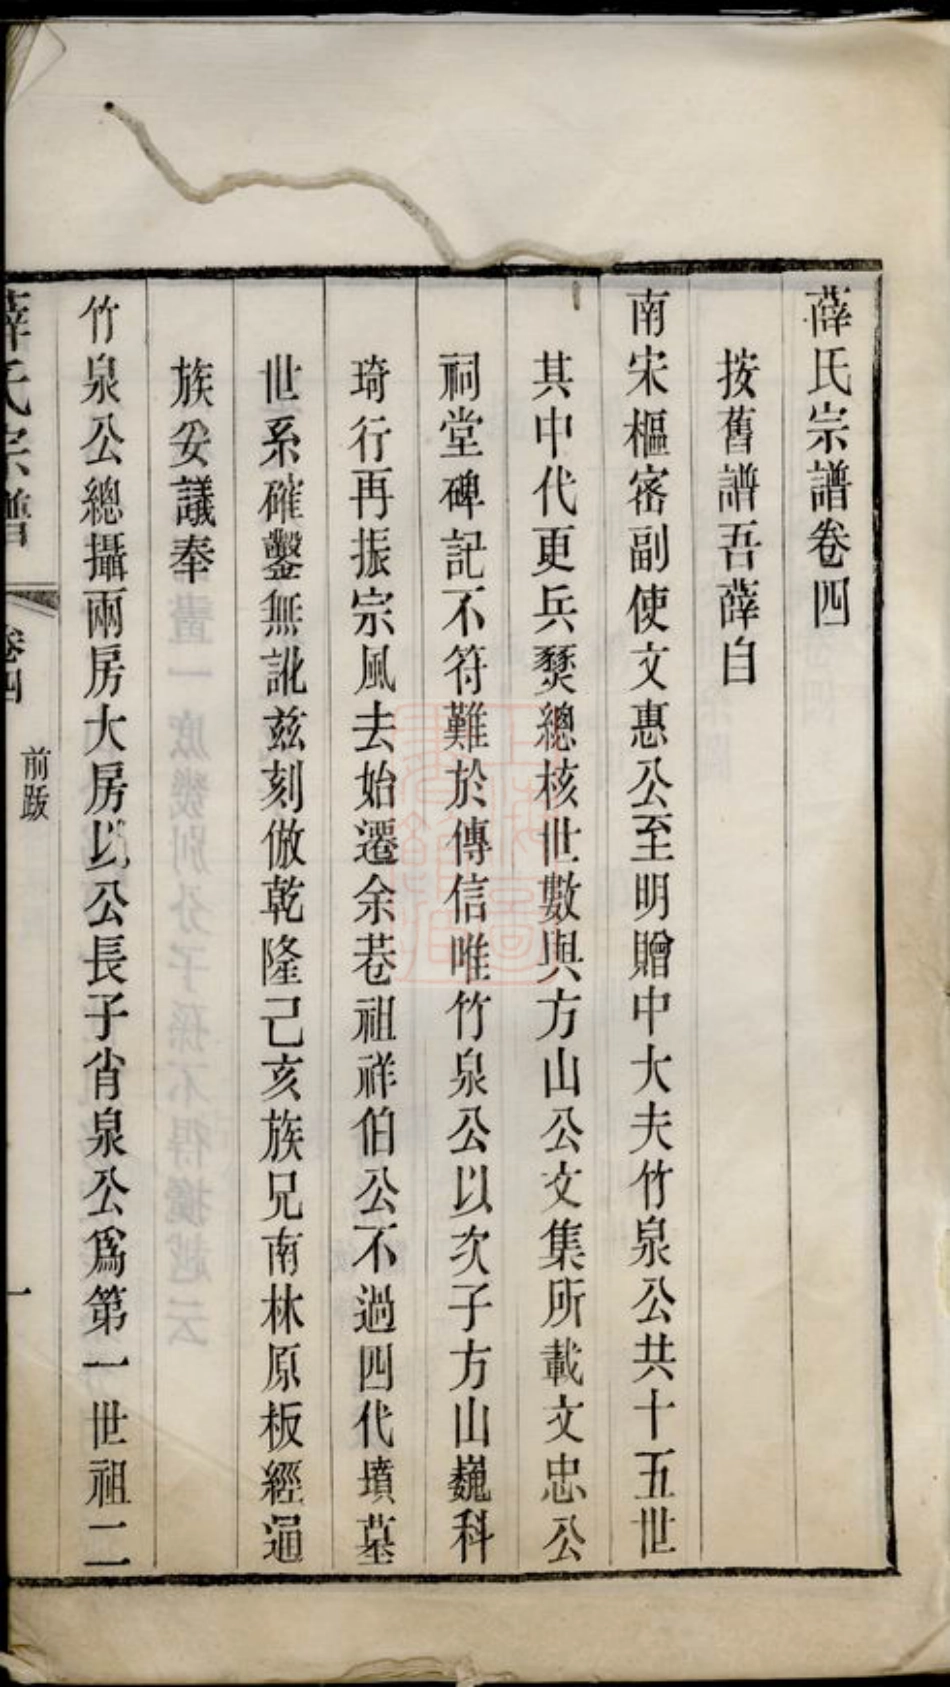 薛氏宗譜卷四
按舊譜吾薛自
南宋樞密副使文惠公至明贈中大夫竹泉公共十五世
其中代更兵燹總核世數與方山公文集所載文忠公
祠堂碑記不符難於傳信唯竹泉公以次子方山巍科
琦行再振宗風去始遷余巷祖祥伯公不過四代墳墓
世系確鑿無訛茲刻倣乾隆己亥族兄南林原板經通
族妥議奉
竹泉公總攝兩房大房以公長子肖泉公爲第一世祖二
薛氏宗譜
卷四
前跋
一